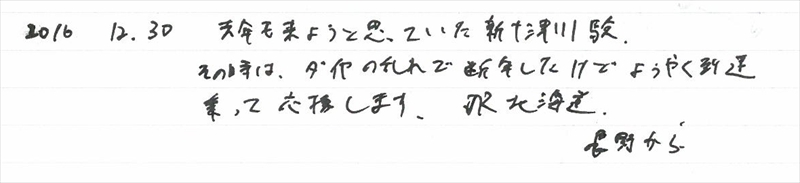 2016 12.30 去年も来ようと思っていた新十津川駅.
その時は、ダイヤの乱れで断念したけどようやく到達
乗って応援します、JR北海道.
長野から